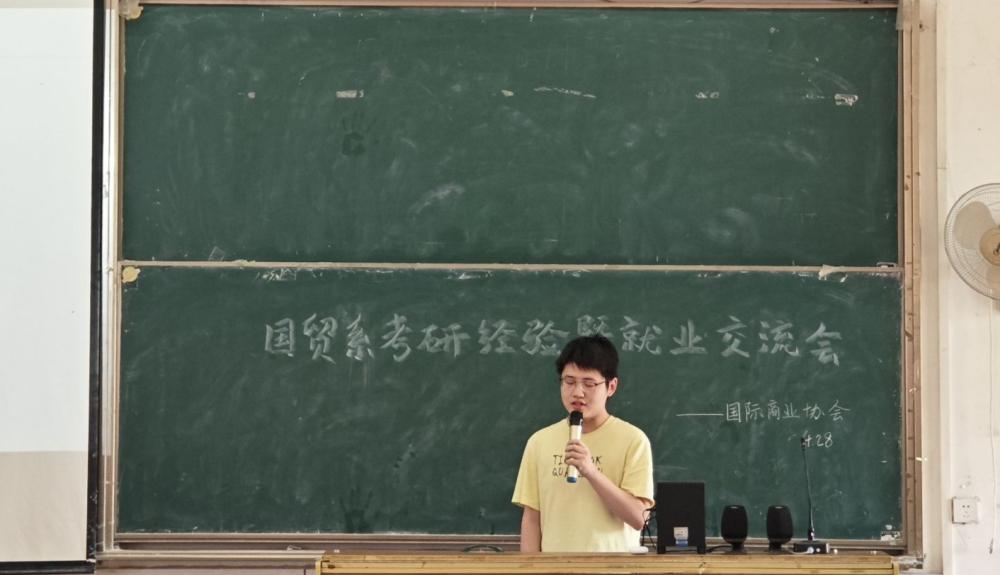 国贸系考研经验暨就业交流会
——国际商业协会
4.28